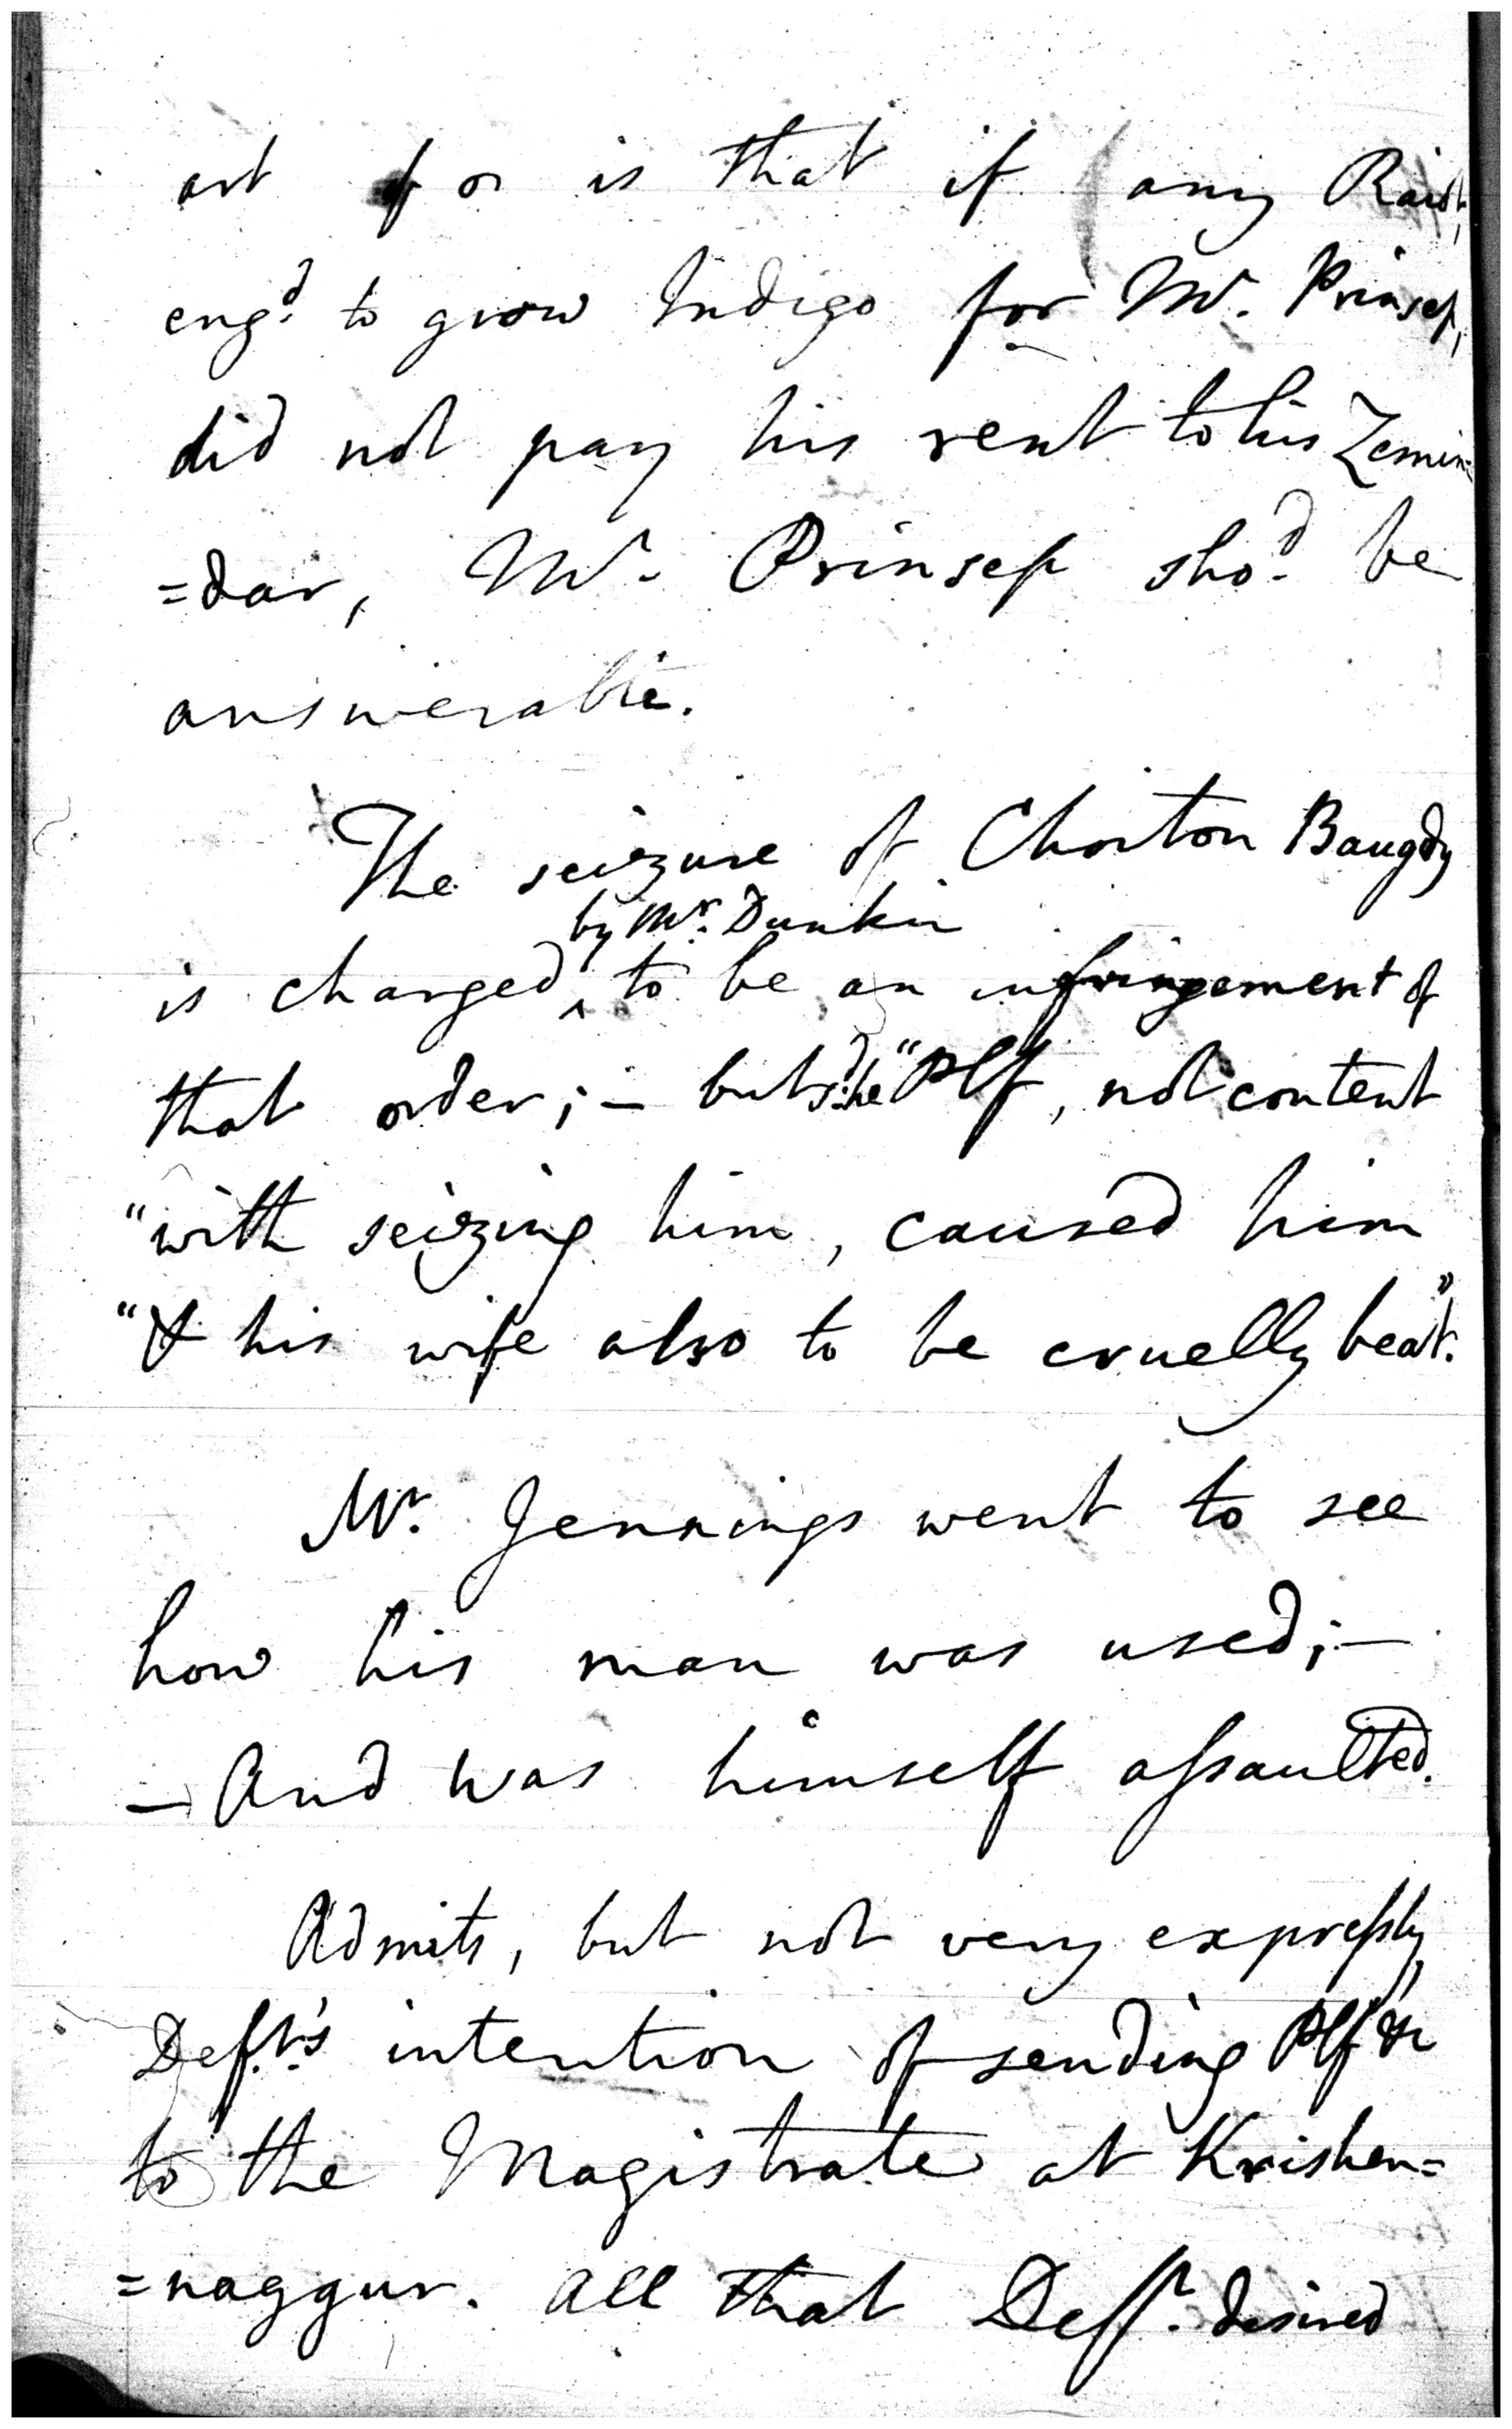 is that if any Raiot,
eng.d to grow Indigo for Mr. Prinsep,
did not pay his rent to his Zemin=
=dar, Mr. Prinsep sho.d be
answerable.
The seizure of Choiton Baugdy
by Mr. Dunkin
is charged ^ to be an infringement of
that order; – but s.d he "Plf, not content
"with seizing him, caused him
"& his wife also to be cruelly beat."
Mr. Jennings went to see
how his man was used; –
– And was himself assaulted.
Admits, but not very expressly,
Deft.'s intention of sending Plf &c
to the Magistrate at Krishen=
=naggur. All that Deft. desired